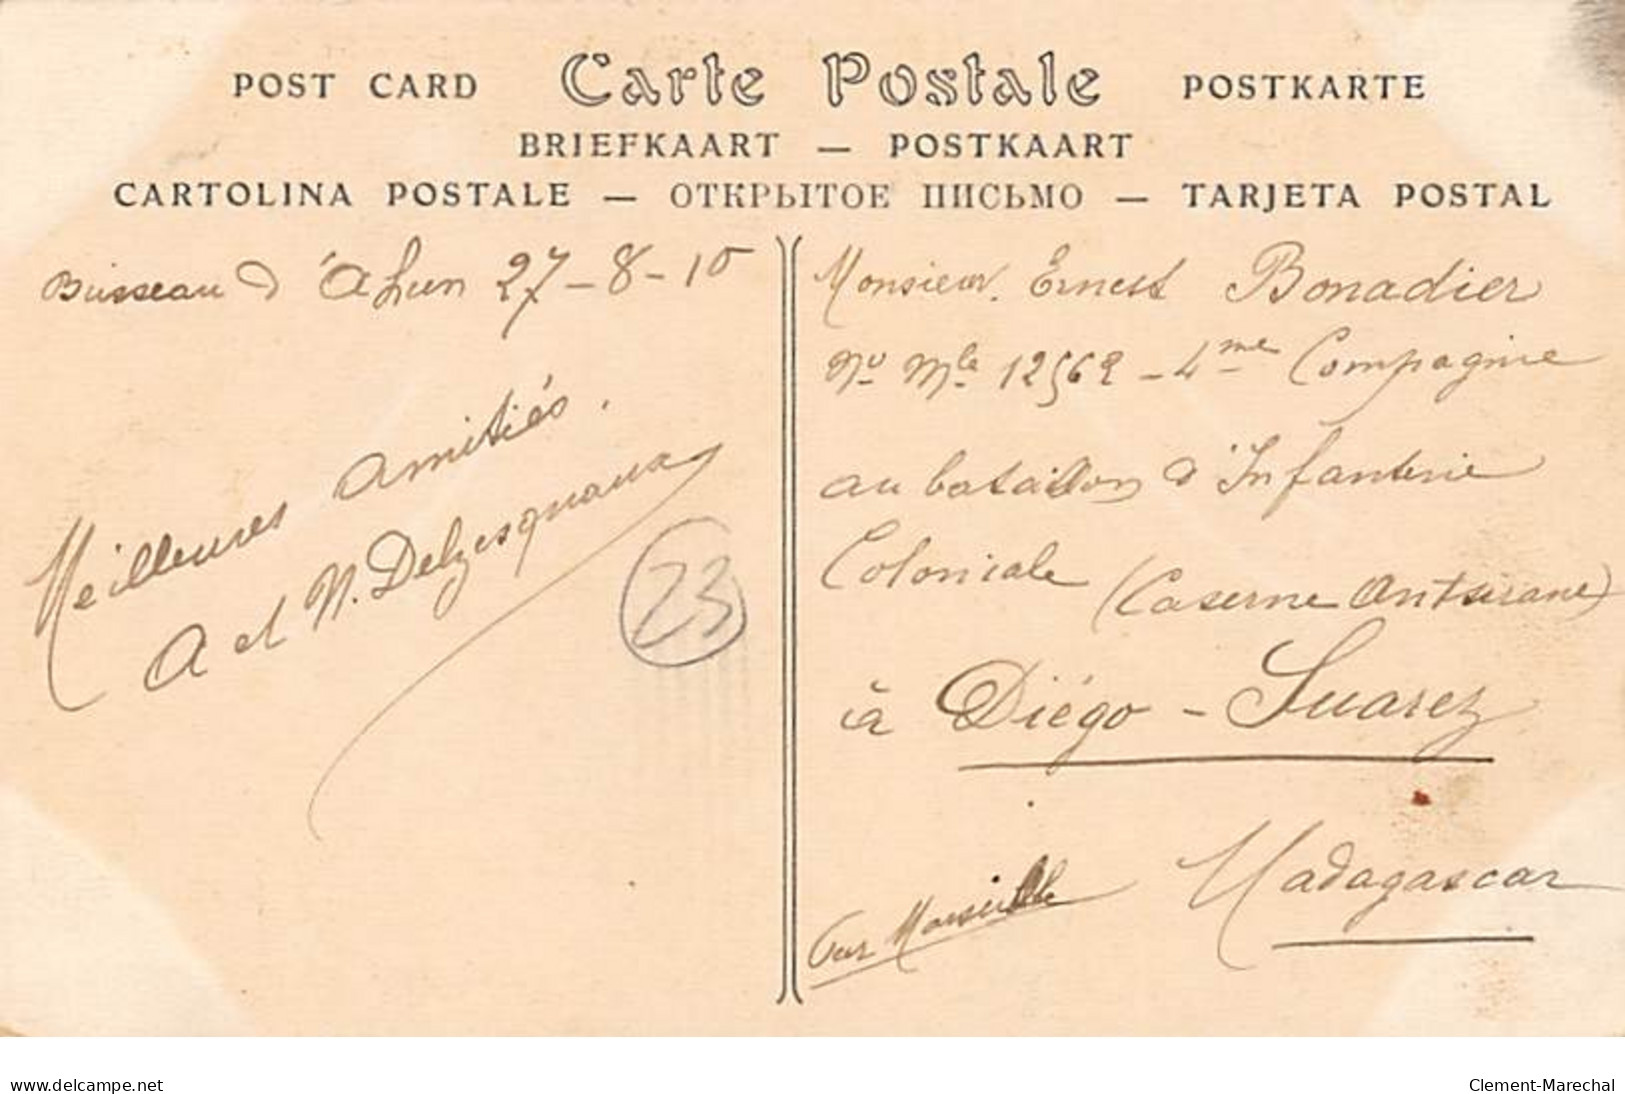 POST CARD Carte Postale POSTKARTE
BRIEFKAART — POSTKAART
CARTOLINA POSTALE — ОТКРЫТОЕ ПИСЬМО — TARJETA POSTAL
Busseau d'Ahun 27-8-10
Meilleures amitiés.
A et M. Delzesquaux
23
Monsieur. Ernest Bonadier
No Mle 12562 - 4me Compagnie
au bataillon d'Infanterie
Coloniale (Caserne Antsirane)
à Diégo-Suarez
Madagascar
Par Marseille
www.delcampe.net
Clement-Marechal